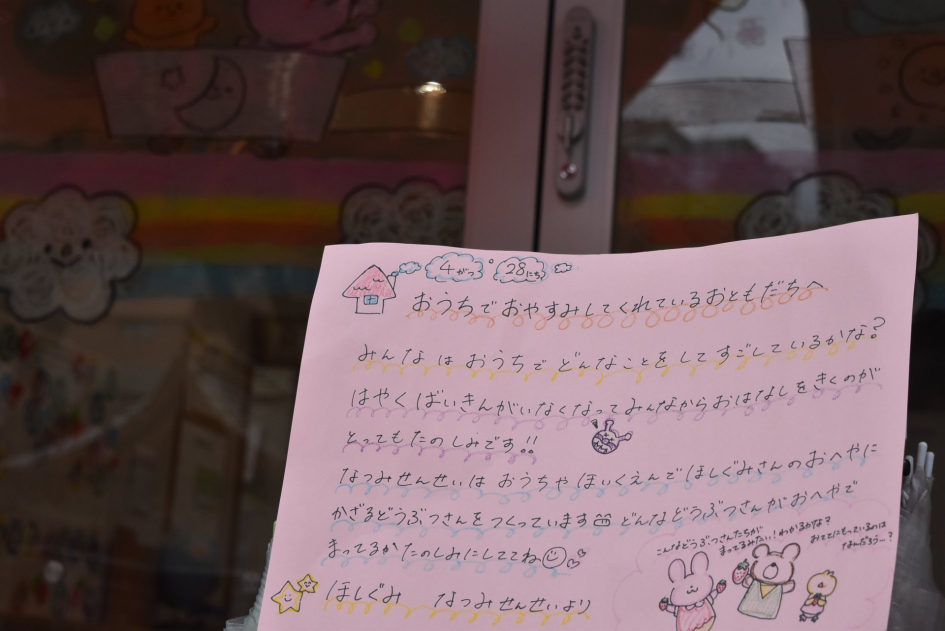 4がつ 28にち
おうちでおやすみしてくれているおともだちへ
みんなはおうちでどんなことをしてすごしているかな?
はやくばいきんがいなくなってみんなからおはなしをきくのが
とってもたのしみです!!
なつみせんせいはおうちやほいくえんでほしぐみさんのおへやに
かざるどうぶつさんをつくっています どんなどうぶつさんがおへやで
まってるかたのしみにしててね
こんなどうぶつさんたちが
まってるみたい!わかるかな?
おててにもっているのは
なんだろう〜?
ほしぐみ なつみせんせいより